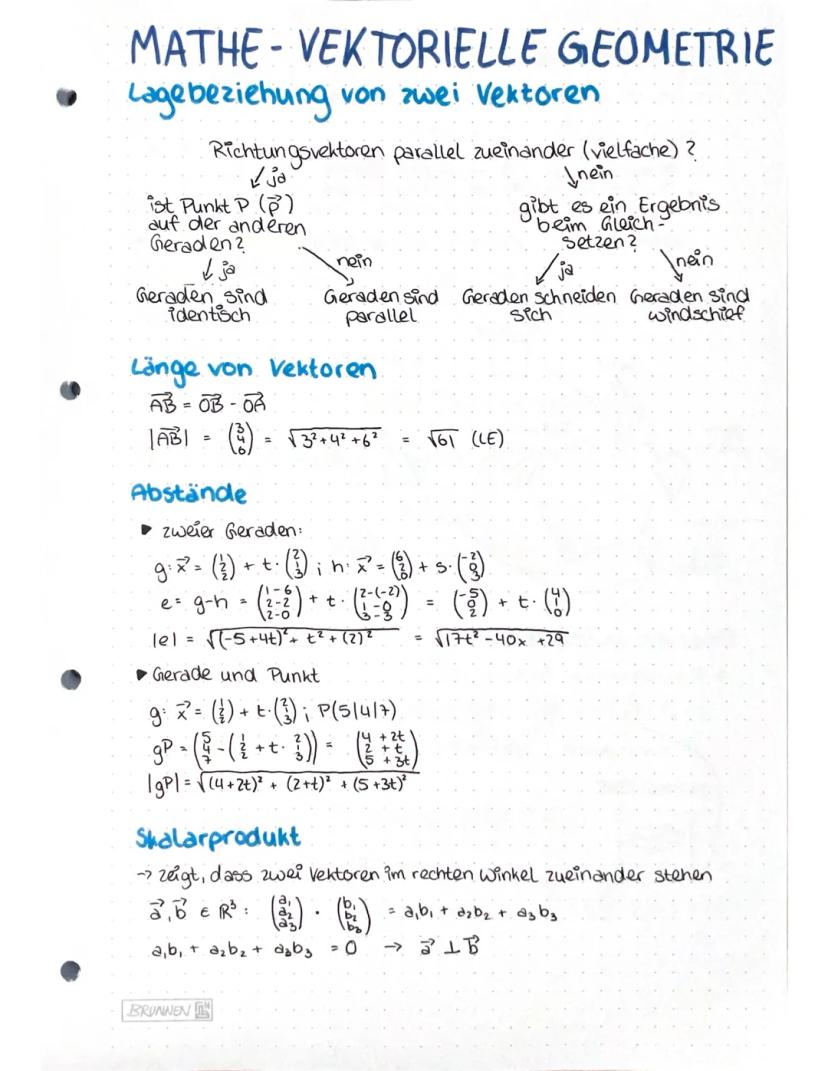 MATHE - VEKTORIELLE GEOMETRIE
Lagebeziehung von zwei Vektoren
Richtungsvektoren parallel zueinander (vielfache) ?
↙ ja ↘ nein
ist Punkt P (p⃗) auf der anderen Geraden?
↙ ja ↘ nein
Geraden sind identisch
Geraden sind parallel
gibt es ein Ergebnis beim Gleich-setzen?
↙ ja ↘ nein
Geraden schneiden sich
Geraden sind windschief
Länge von Vektoren
A⃗B = O⃗B - O⃗A
|A⃗B| = (3 4 6) = √3²+4²+6² = √61 (LE)
Abstände
▶ zweier Geraden:
g: x⃗ = (1 2 2) + t · (2 1 3) ; h: x⃗ = (6 2 0) + s · (-2 0 3)
e = g-h = (1-6 2-2 2-0) + t · (2-(-2) 1-0 3-3) = (-5 0 2) + t · (4 1 0)
|e| = √(-5+4t)² + t² + (2)² = √17t² -40x +29
▶ Gerade und Punkt
g: x⃗ = (1 2 2) + t · (2 1 3) ; P(5|4|7)
gP = (5 4 7 - (1 2 2 + t · 2 1 3)) = (4 + 2t 2 + t 5 + 3t)
|gP| = √(4+2t)² + (2+t)² + (5+3t)²
Skalarprodukt
→ zeigt, dass zwei Vektoren im rechten Winkel zueinander stehen
a⃗, b⃗ ∈ ℝ³ : (a₁ a₂ a₃) · (b₁ b₂ b₃) = a₁b₁ + a₂b₂ + a₃b₃
a₁b₁ + a₂b₂ + a₃b₃ = 0 → a⃗ ⊥ b⃗
BRUNNEN